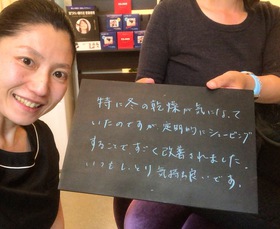 特に冬の乾燥が気になって
いたのですが定期的にシェービング
することですごく改善されました。
いつもしっとり気持ち良いです。